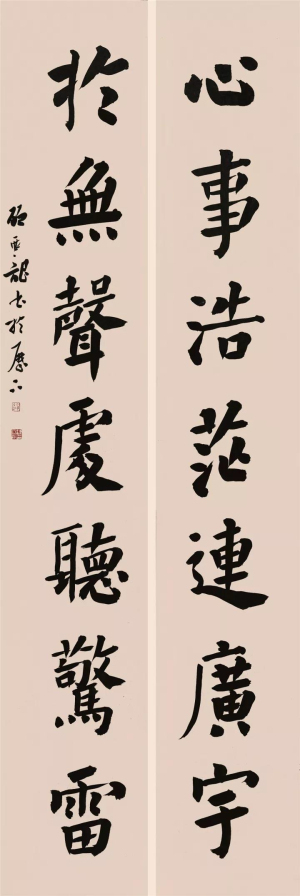 心事浩茫連廣宇
於無聲處聽驚雷
亞龍書於歷下